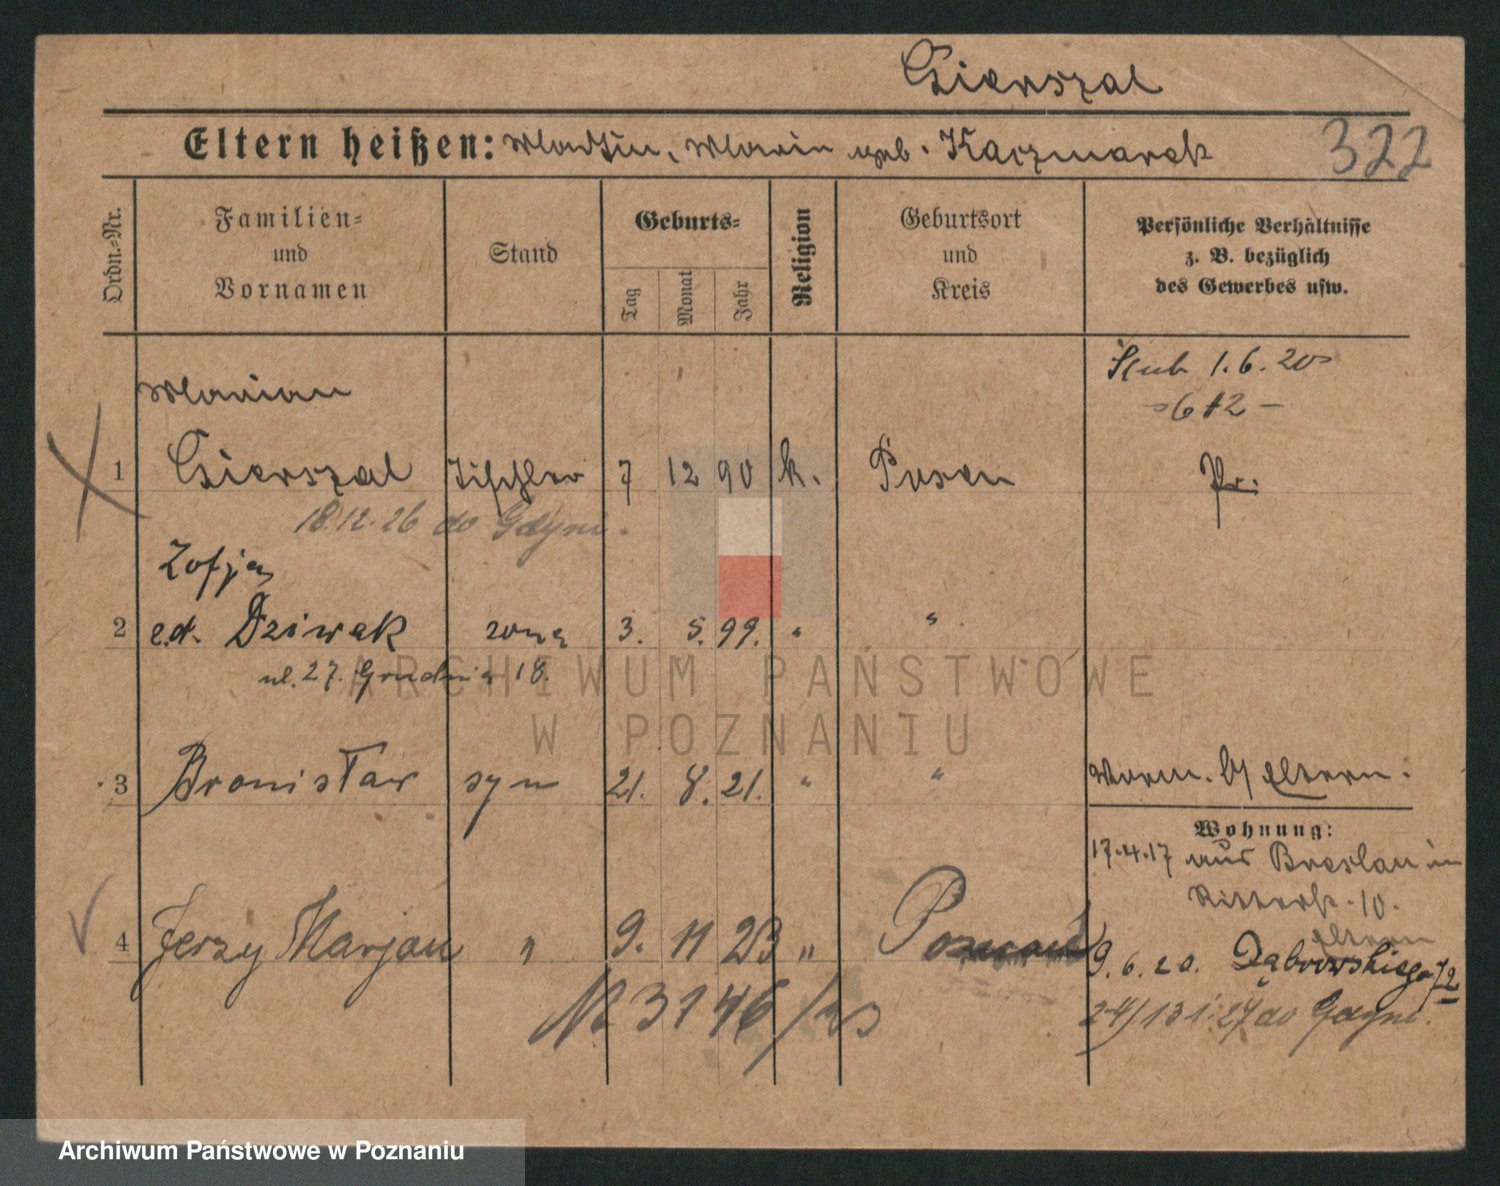 Gierszal
Eltern heißen: Martin, Maria geb. Kaczmarek
322
Ordn.-Nr.
Familien-
und
Vornamen
Stand
Geburts-
Tag
Monat
Jahr
Religion
Geburtsort
und
Kreis
Persönliche Verhältnisse
z. B. bezüglich
des Gewerbes usw.
Ślub 1.6.20
612 –
Marian
1 Gierszal Tischler 7 12 90 k. Posen Pr.
18.12.26 do Gdyni.
Zofja
2 z d. Dziwak żona 3. 5. 99. " "
ul. 27. Grudnia 18.
3 Bronisław syn 21. 8. 21. " "
Worm. b/ Eltern.
Wohnung:
17.4.17 aus Breslau in
Ritterstr. 10.
Eltern
4 Jerzy Marjan " 9. 11 23 " Poznań
9.6.20. Dąbrowskiego 72
N 3146/23
24/13 1.27 do Gdyni.
ARCHIWUM PAŃSTWOWE
W POZNANIU
Archiwum Państwowe w Poznaniu